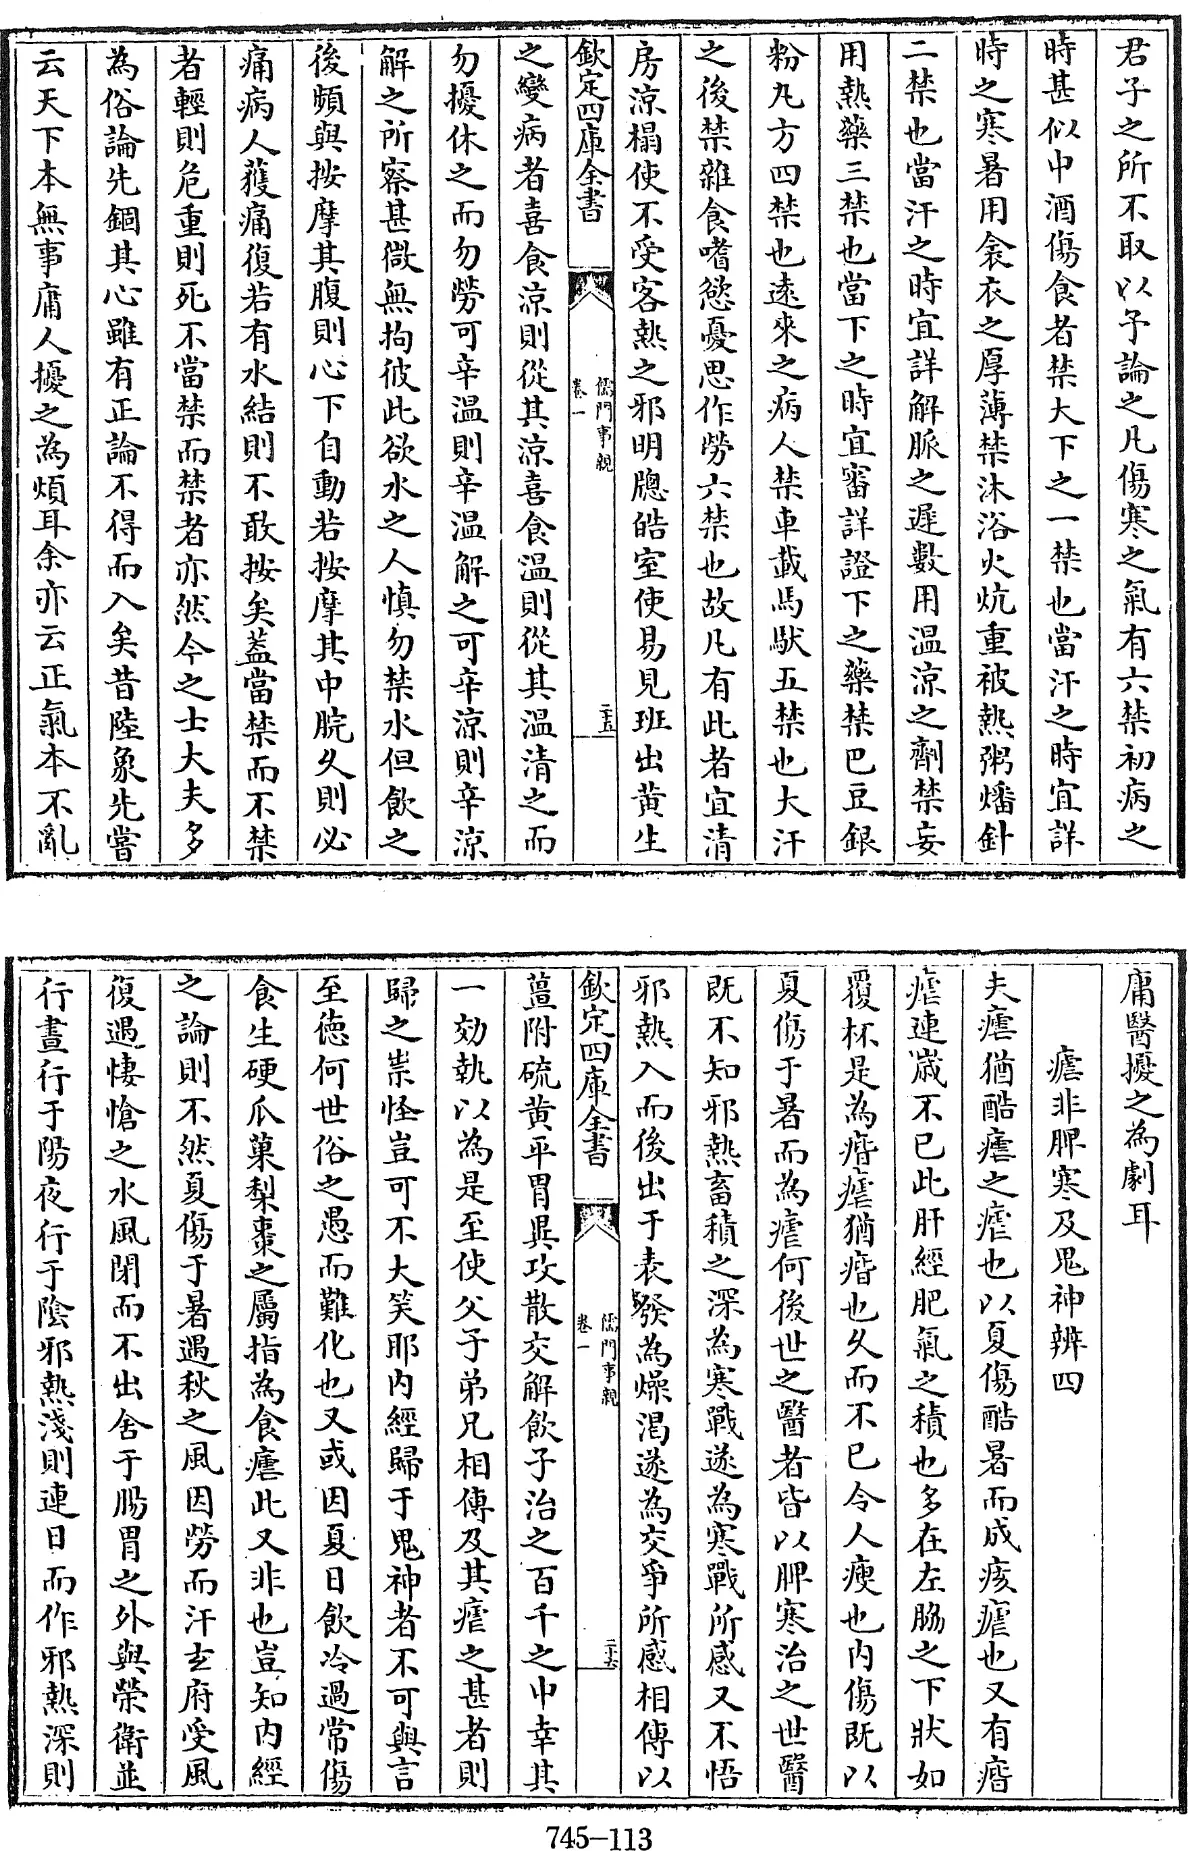 君子之所不取以予論之凡傷寒之氣有六禁初病之
時甚似中酒傷食者禁大下之一禁也當汗之時宜詳
時之寒暑用衾衣之厚薄禁沐浴火炕重被熱粥燔針
二禁也當汗之時宜詳解脈之遲數用温涼之劑禁妄
用熱藥三禁也當下之時宜審詳證下之藥禁巴豆銀
粉丸方四禁也遠來之病人禁車載馬馱五禁也大汗
之後禁雜食嗜慾憂思作勞六禁也故凡有此者宜清
房涼榻使不受客熱之邪明牕皓室使易見斑出黄生
欽定四庫全書
儒門事親
卷一
二十五
之變病者喜食涼則從其涼喜食温則從其温清之而
勿擾休之而勿勞可辛温則辛温解之可辛涼則辛涼
解之所察甚微無拘彼此欲水之人慎勿禁水但飲之
後頻與按摩其腹則心下自動若按摩其中脘久則必
痛病人獲痛復若有水結則不敢按矣蓋當禁而不禁
者輕則危重則死不當禁而禁者亦然今之士大夫多
為俗論先錮其心雖有正論不得而入矣昔陸象先嘗
云天下本無事庸人擾之為煩耳余亦云正氣本不亂
庸醫擾之為劇耳
瘧非脾寒及鬼神辨四
夫瘧猶酷瘧之瘧也以夏傷酷暑而成痎瘧也又有痦
瘧連歲不已此肝經肥氣之積也多在左脇之下狀如
覆杯是為痦瘧猶痦也久而不已令人瘦也内傷既以
夏傷于暑而為瘧何後世之醫者皆以脾寒治之世醫
既不知邪熱畜積之深為寒戰遂為寒戰所感又不悟
邪熱入而後出于表發為燥渴遂為交爭所感相傳以
欽定四庫全書
儒門事親
卷一
二十六
薑附硫黄平胃異攻散交解飲子治之百千之中幸其
一効執以為是至使父子弟兄相傳及其瘧之甚者則
歸之祟怪豈可不大笑耶内經歸于鬼神者不可與言
至德何世俗之愚而難化也又或因夏日飲冷過常傷
食生硬瓜菓梨棗之屬指為食瘧此又非也豈知内經
之論則不然夏傷于暑遇秋之風因勞而汗玄府受風
復遇悽愴之水風閉而不出舍于腸胃之外與榮衛並
行晝行于陽夜行于陰邪熱淺則連日而作邪熱深則
745-113